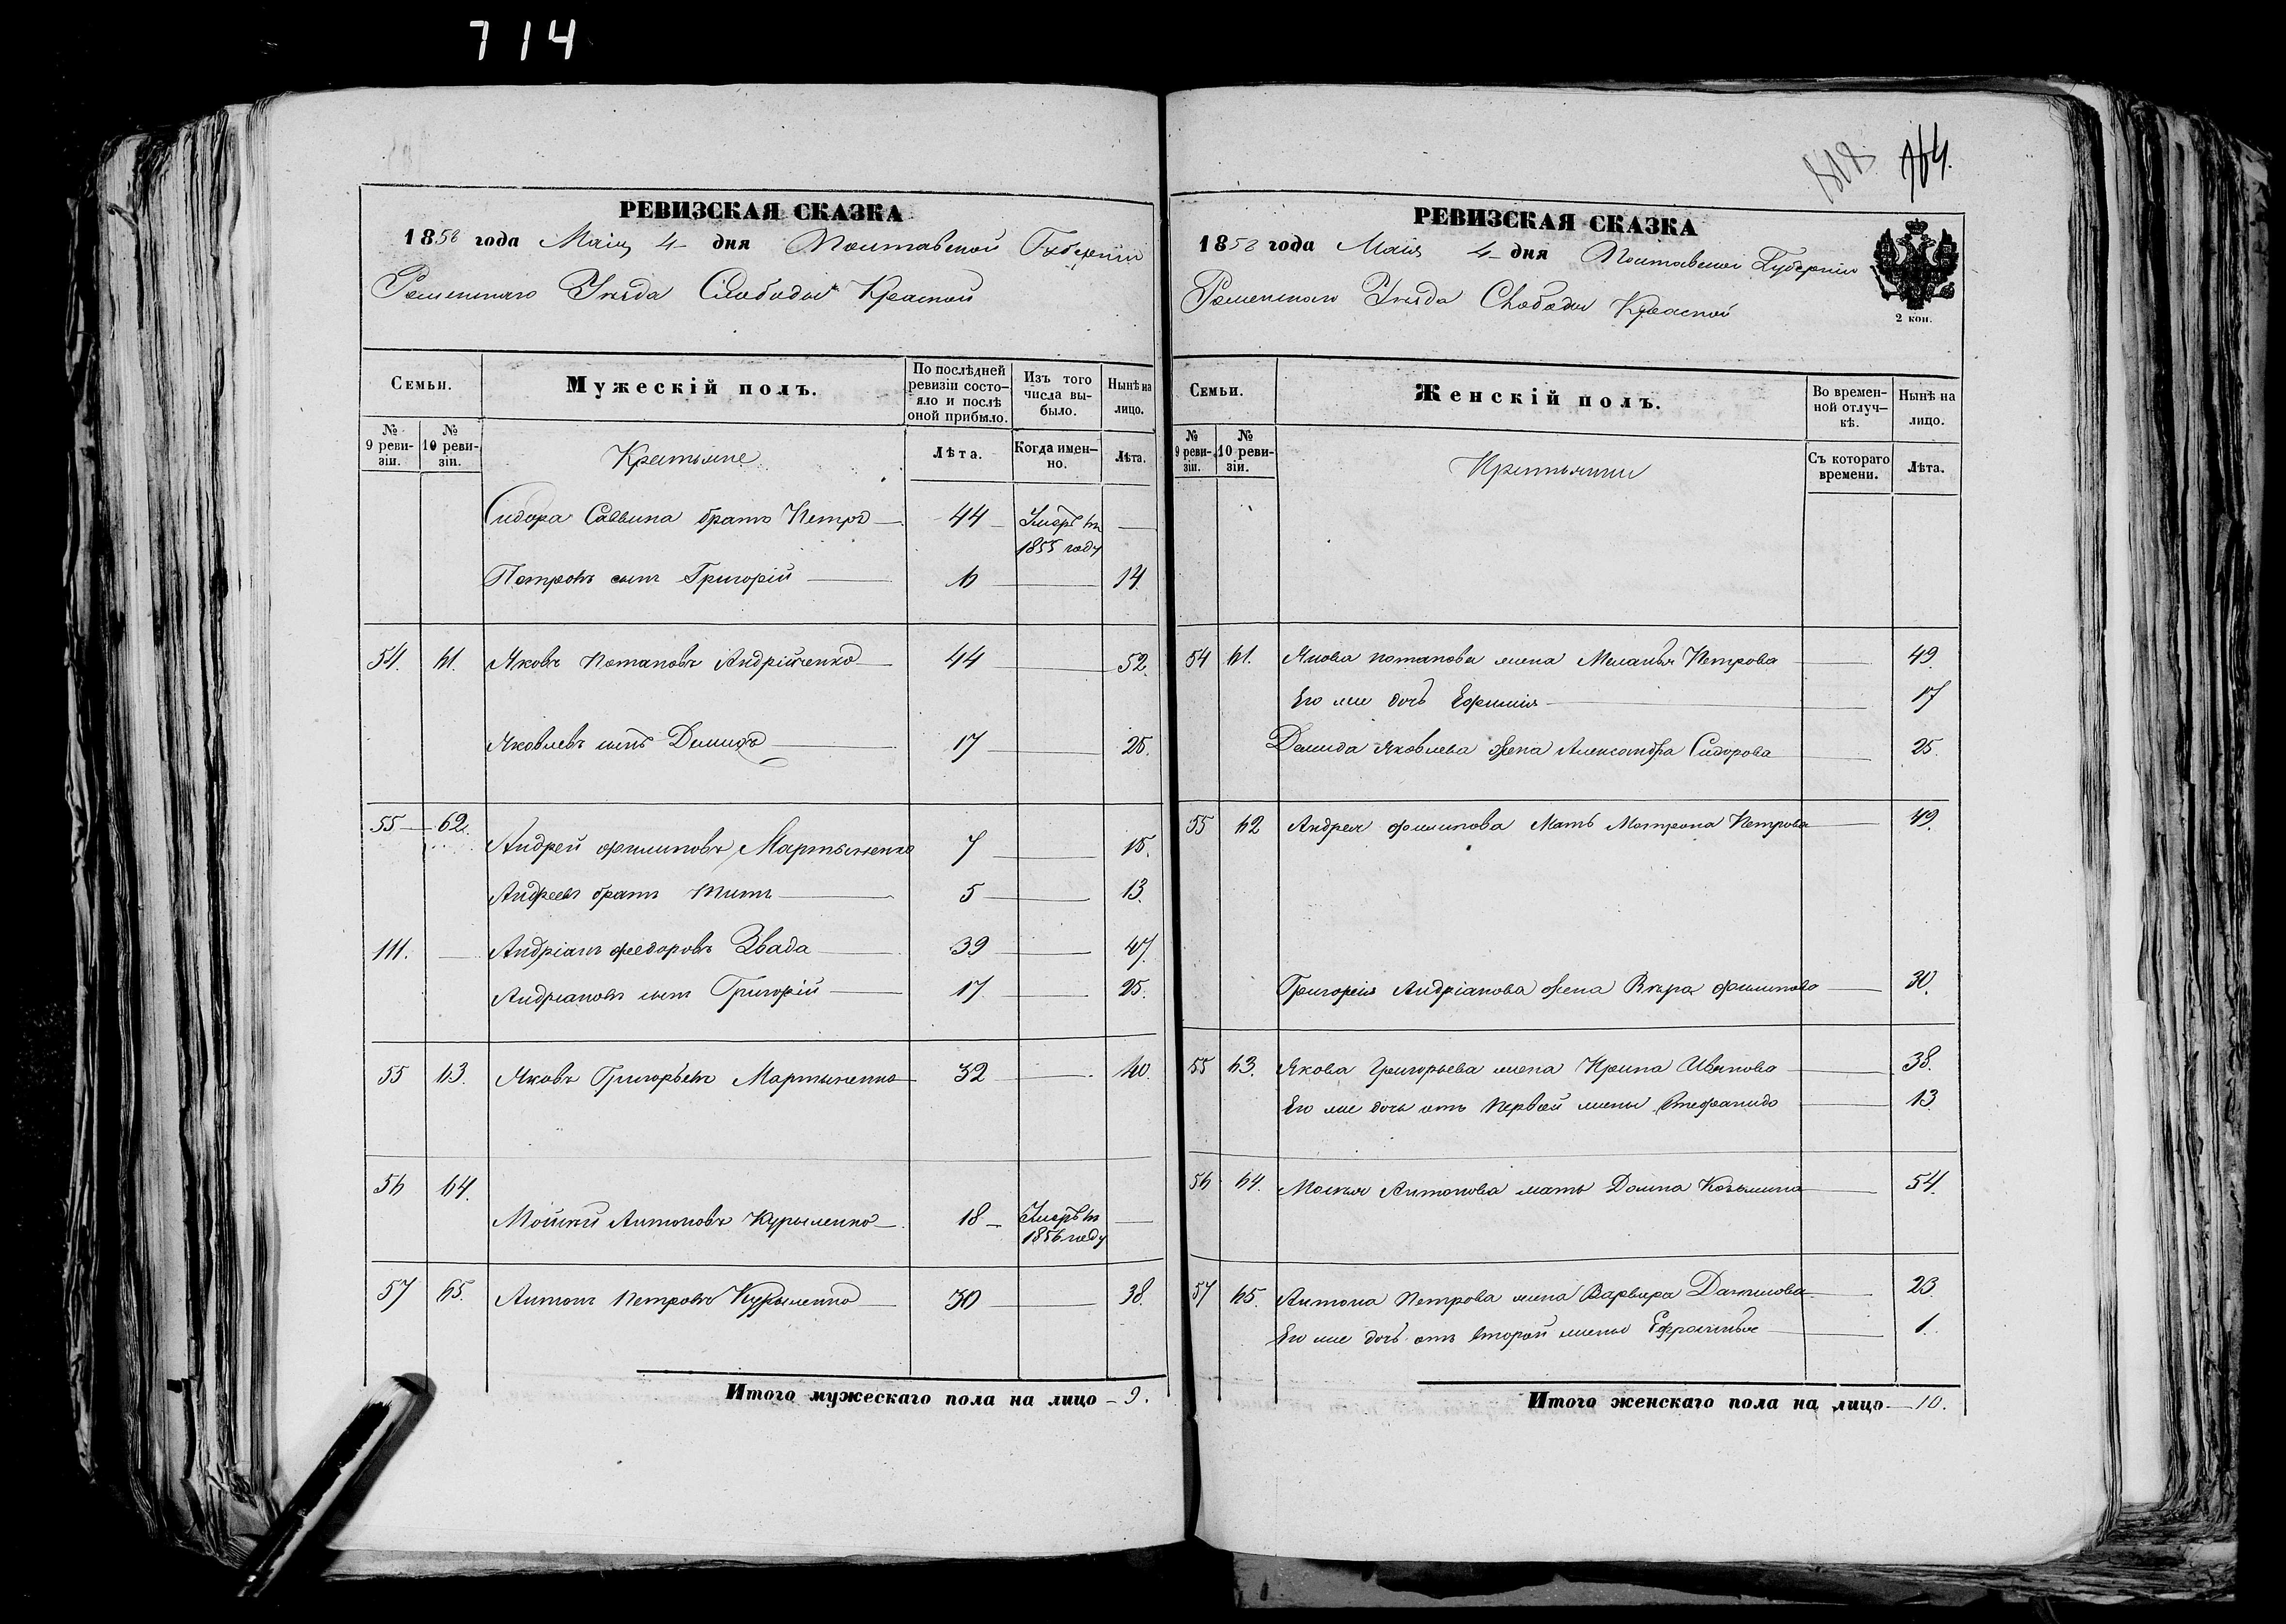 714
РЕВИЗСКАЯ СКАЗКА
1858 года Маія 4 дня Полтавской Губерніи
Роменскаго Уезда Слободы Красной
Семьи.
Мужескій полъ.
По послѣдней ревизіи состо-яло и послѣ оной прибыло.
Изъ того числа вы-было.
Нынѣ на лицо.
№ 9 реви-зіи.
№ 10 реви-зіи.
Крестьяне
Лѣта.
Когда имен-но.
Лѣта.
Сидора Саввина братъ Петръ 44 Умеръ въ
1855 году
Петровъ сынъ Григорій 6 14
54. 61. Яковъ Потаповъ Андрійченко 44 52.
Яковлевъ сынъ Демидъ 17 25.
55 62. Андрей Филиповъ Мартыненко 7 15.
Андреевъ братъ Титъ 5 13.
111. Андріанъ Федоровъ Звада 39 47.
Андріановъ сынъ Григорій 17 25.
55 63. Яковъ Григорьевъ Мартыненко 32 40.
56 64. Мойсей Антоновъ Курыленко 18 Умеръ въ
1856 году
57 65. Антонъ Петровъ Курыленко 30 38.
Итого мужескаго пола на лицо 9.
164.
РЕВИЗСКАЯ СКАЗКА
1858 года Маія 4 дня Полтавской Губерніи
Роменскаго Уезда Слободы Красной
2 коп.
Семьи.
Женскій полъ.
Во времен-ной отлуч-кѣ.
Нынѣ на лицо.
№ 9 реви-зіи.
№ 10 реви-зіи.
Крестьянки
Съ котораго времени.
Лѣта.
54 61. Якова Потапова жена Меланья Петрова 49.
Его же дочь Ефимия 17
Демида Яковлева жена Александра Сидорова 25.
55 62 Андрея Филипова Мать Матрона Петрова 49.
Григорія Андріанова жена Вѣра Филипова 30.
55 63. Якова Григорьева жена Ирина Иванова 38.
Его же дочь отъ первой жены Стефанида 13
56 64. Мойсея Антонова мать Домна Козьмина 54.
57 65. Антона Петрова жена Варвара Данилова 23.
Его же дочь отъ второй жены 1.
Итого женскаго пола на лицо 10.